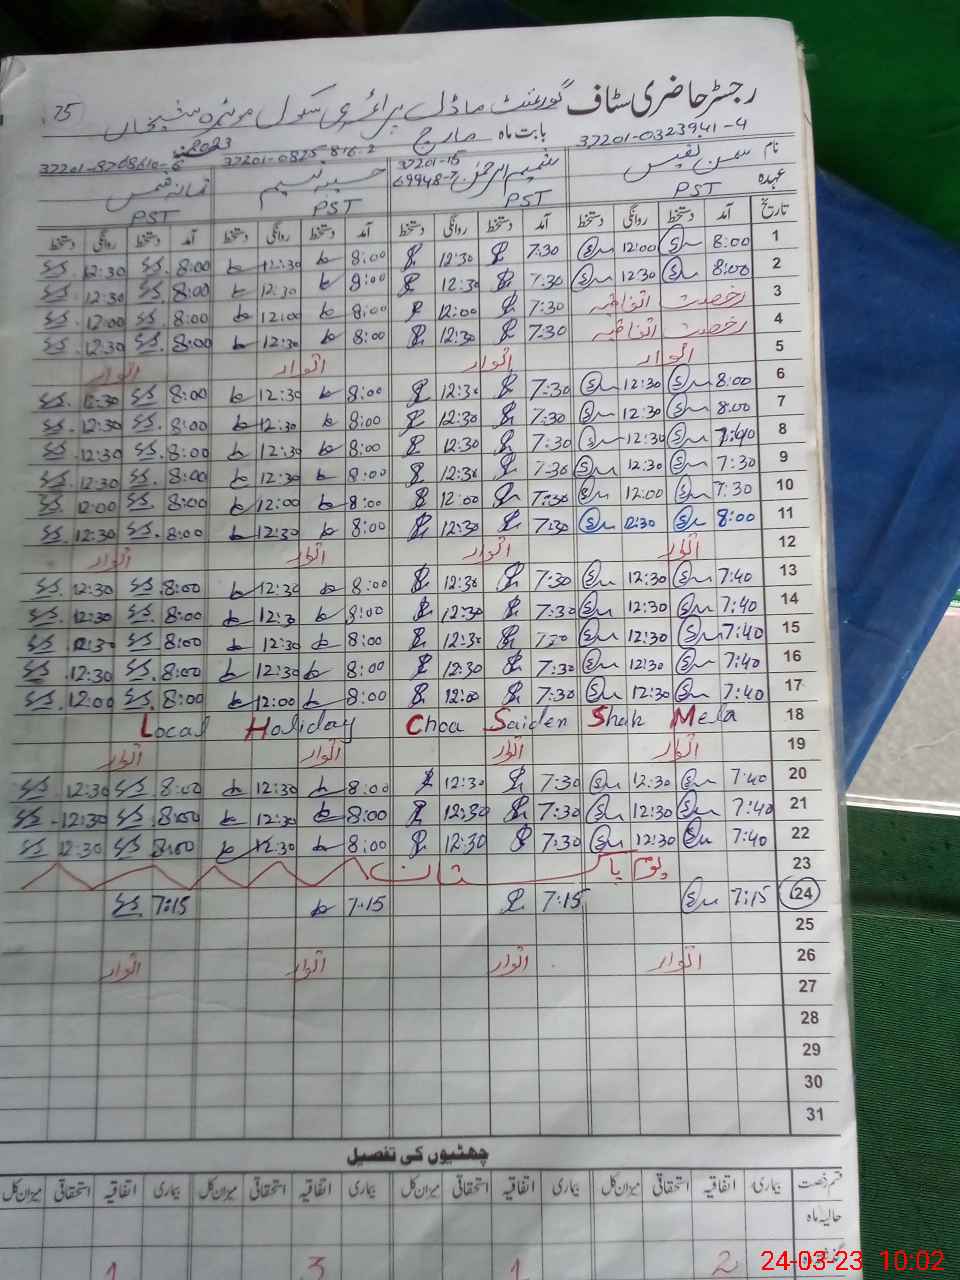 رجسٹر حاضری سٹاف گورنمنٹ ماڈل پرائمری سکول
بابت ماہ مارچ 2023
نام 37201-0323941-4 37201-15 69948-7 37201-0825816-2
عہدہ PST PST PST PST
تاریخ آمد دستخط روانگی دستخط آمد دستخط روانگی دستخط آمد دستخط روانگی دستخط آمد دستخط روانگی دستخط
1 8:00 12:00 7:30 12:30 8:00 12:30 8:00 12:30
2 8:00 12:30 7:30 12:30 8:00 12:30 8:00 12:30
3 رخصت اتفاقیہ 7:30 12:00 8:00 12:00 8:00 12:00
4 رخصت اتفاقیہ 7:30 12:30 8:00 12:30 8:00 12:30
5 اتوار اتوار اتوار اتوار
6 8:00 12:30 7:30 12:30 8:00 12:30 8:00 12:30
7 8:00 12:30 7:30 12:30 8:00 12:30 8:00 12:30
8 12:30 7:30 12:30 8:00 12:30 8:00 12:30
9 7:30 12:30 7:30 12:30 8:00 12:30 8:00 12:30
10 7:30 12:00 7:30 12:00 8:00 12:00 8:00 12:00
11 8:00 12:30 7:30 12:30 8:00 12:30 8:00 12:30
12 اتوار اتوار اتوار اتوار
13 7:40 12:30 7:30 12:30 8:00 12:30 8:00 12:30
14 7:40 12:30 7:30 12:30 8:00 12:30 8:00 12:30
15 7:40 12:30 12:30 8:00 12:30 8:00 12:30
16 7:40 12:30 7:30 12:30 8:00 12:30 8:00 12:30
17 7:40 12:30 7:30 12:00 8:00 12:00 8:00 12:00
18 Local Holiday Choa Saiden Shah Mela
19 اتوار اتوار اتوار اتوار
20 7:40 12:30 7:30 12:30 8:00 12:30 8:00 12:30
21 7:40 12:30 7:30 12:30 8:00 12:30 8:00 12:30
22 7:40 12:30 7:30 12:30 8:00 12:30 8:00 12:30
23 یوم پاکستان
24 7:15 7:15 7:15 7:15
25
26 اتوار اتوار اتوار اتوار
27
28
29
30
31
چھٹیوں کی تفصیل
قسم رخصت بیماری اتفاقیہ استحقاقی میزان کل بیماری اتفاقیہ استحقاقی میزان کل بیماری اتفاقیہ استحقاقی میزان کل بیماری اتفاقیہ استحقاقی میزان کل
حالیہ ماہ
2 1 3 1
24-03-23 10:02